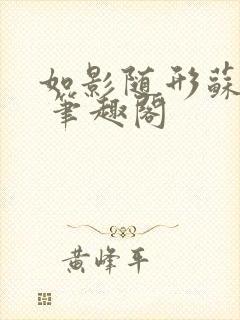 如影随形蘇
笔趣阁
黄峰平